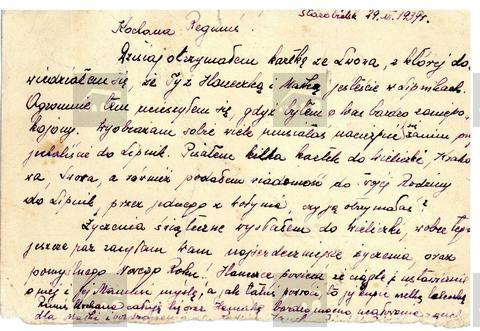 Starobielsk 29.XI.1939r.
Kochana Reguniu!
Dzisiaj otrzymałem kartkę ze Lwowa, z której do-
wiedziałem się, że Ty z Haneczką i Matką jesteście w Lipnikach.
Ogromnie tem ucieszyłem się, gdyż byłem o Was bardzo zaniepo-
kojony. Wyobrażam sobie wiele musiałaś nacierpieć zanim przy-
jechaliście do Lipnik. Pisałem kilka kartek do Wieliczki, Krako-
wa, Lwowa, a również podałem wiadomość do Twojej Rodziny
do Lipnik, przez jednego z, czy ją otrzymałaś?
Życzenia świąteczne wysłałem do Wieliczki, wobec tego
jeszcze raz zasyłam Wam najserdeczniejsze życzenia oraz
pomyślnego Nowego Roku. Haneczce powiedz że ciągle i ustawicznie
o niej i jej Mamusi myślę, a jak tatuś powróci to jej kupi wielką
całuję Cię oraz Haneczkę bardzo mocno,
dla Matki i